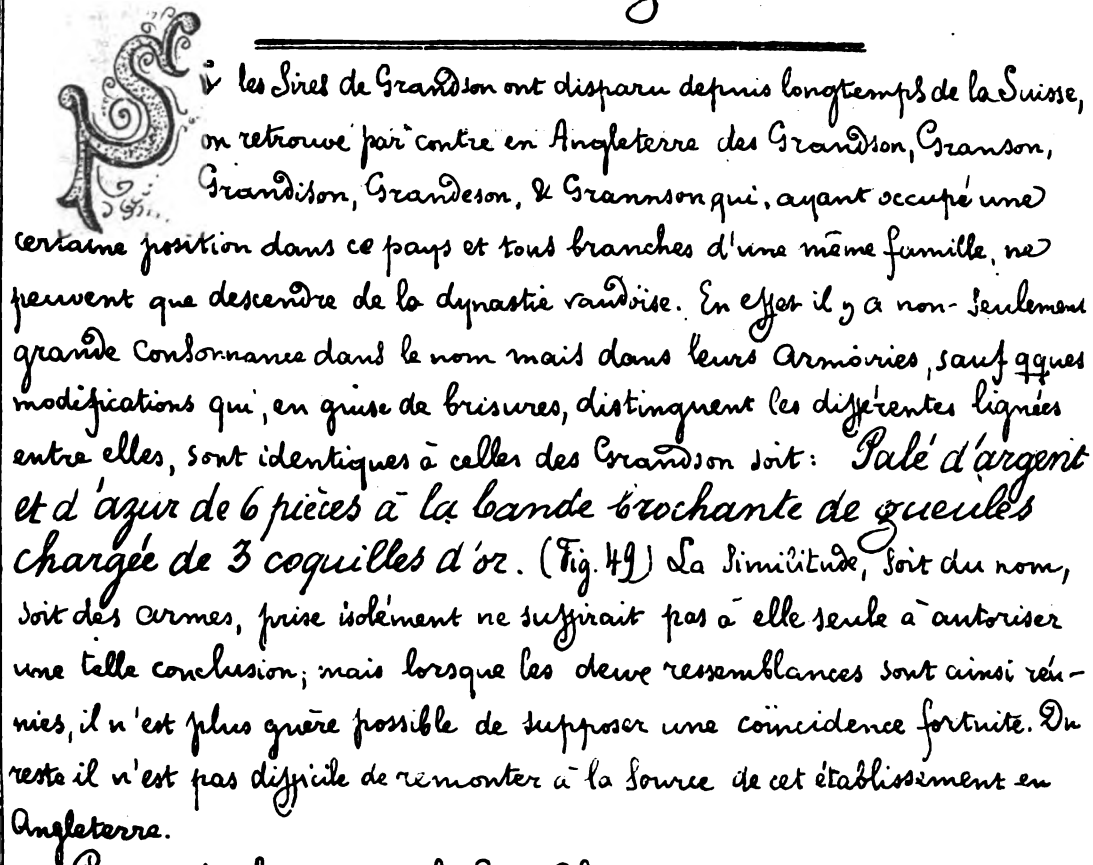 Si les Sires de Grandson ont disparu depuis longtemps de la Suisse,
on retrouve par contre en Angleterre des Grandson, Granson,
Grandison, Grandeson, & Grannson qui, ayant occupé une
certaine position dans ce pays et tous branches d'une même famille, ne
peuvent que descendre de la dynastie vaudoise. En effet il y a non-seulement
grande consonnance dans le nom mais dans leurs armoiries, sauf qques
modifications qui, en guise de brisures, distinguent les différentes lignées
entre elles, sont identiques à celles des Grandson soit: Palé d'argent
et d'azur de 6 pièces à la bande brochante de gueules
chargée de 3 coquilles d'or. (Fig. 49) La similitude, soit du nom,
soit des armes, prise isolément ne suffirait pas à elle seule à autoriser
une telle conclusion; mais lorsque les deux ressemblances sont ainsi réu-
nies, il n'est plus guère possible de supposer une coïncidence fortuite. Du
reste il n'est pas difficile de remonter à la source de cet établissement en
Angleterre.